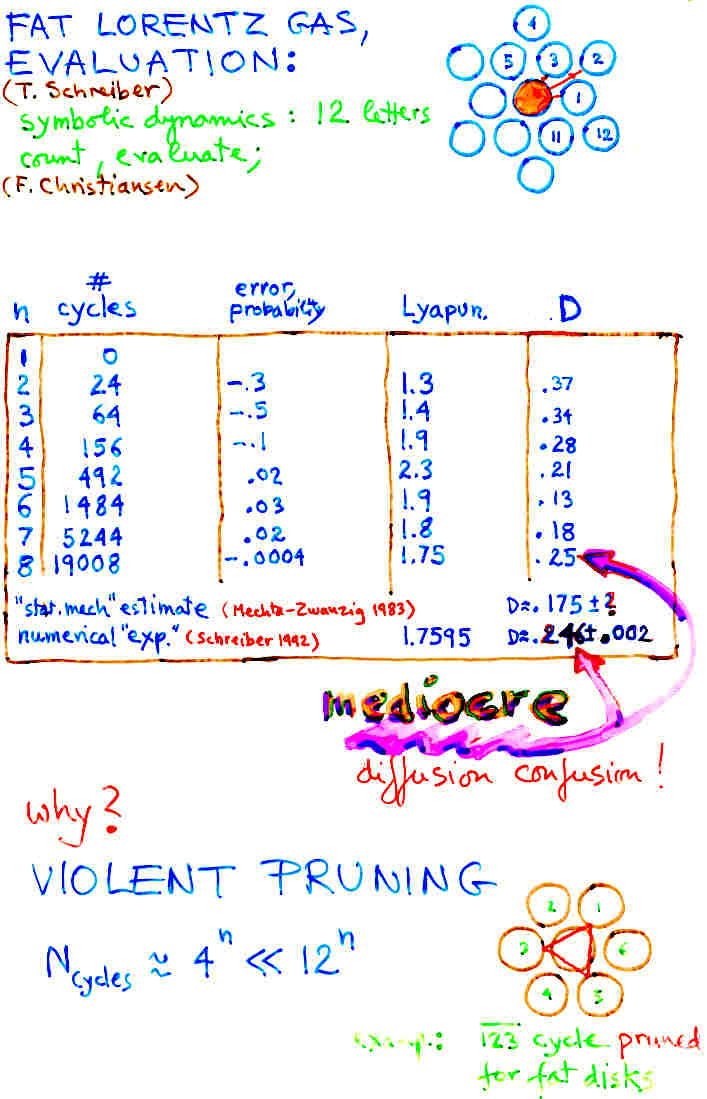 FAT LORENTZ GAS,
EVALUATION:
(T. Schreiber)
symbolic dynamics : 12 letters
count, evaluate;
(F. Christiansen)
4
5 3 2
1
11 12
n # cycles error, probability Lyapun. D
1 0
2 24 -.3 1.3 .37
3 64 -.5 1.4 .34
4 156 -.1 1.9 .28
5 492 .02 2.3 .21
6 1484 .03 1.9 .13
7 5244 .02 1.8 .18
8 19008 -.0004 1.75 .25
"stat. mech" estimate (Mechta-Zwanzig 1983) D≈.175 ± ?
numerical "exp." (Schreiber 1992) 1.7595 D≈.246±.002
mediocre
diffusion confusion!
why?
VIOLENT PRUNING
N cycles ≈ 4^n ≪ 12^n
2 1
3 6
4 5
123 cycle pruned
for fat disks